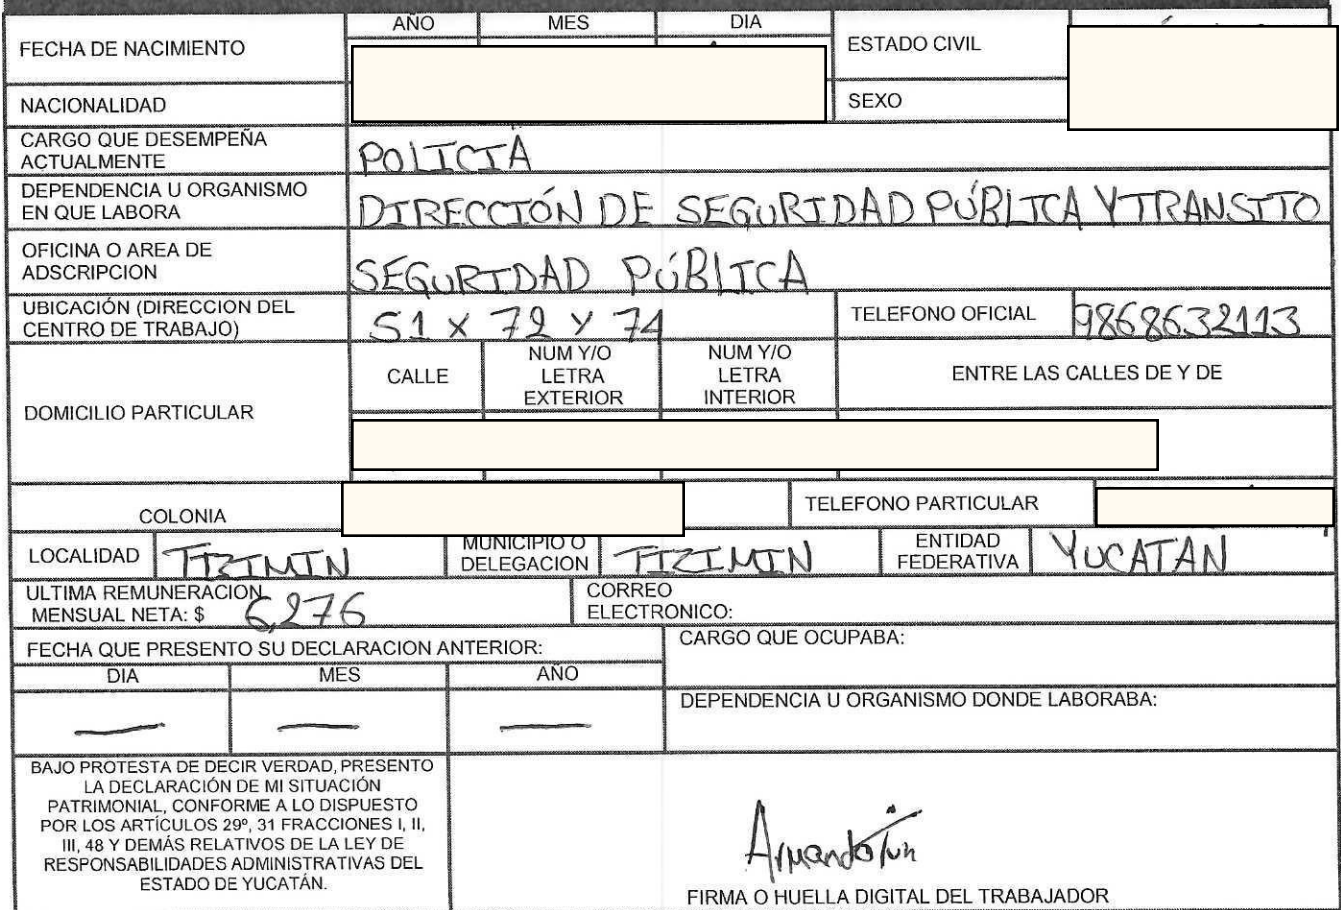 FECHA DE NACIMIENTO AÑO MES DIA ESTADO CIVIL
NACIONALIDAD SEXO
CARGO QUE DESEMPEÑA ACTUALMENTE POLICIA
DEPENDENCIA U ORGANISMO EN QUE LABORA DIRECCIÓN DE SEGURIDAD PÚBLICA Y TRANSITO
OFICINA O AREA DE ADSCRIPCION SEGURIDAD PÚBLICA
UBICACIÓN (DIRECCION DEL CENTRO DE TRABAJO) 51 x 72 y 74 TELEFONO OFICIAL 9868632113
DOMICILIO PARTICULAR CALLE NUM Y/O LETRA EXTERIOR NUM Y/O LETRA INTERIOR ENTRE LAS CALLES DE Y DE
COLONIA TELEFONO PARTICULAR
LOCALIDAD TIZIMIN MUNICIPIO O DELEGACION TIZIMIN ENTIDAD FEDERATIVA YUCATAN
ULTIMA REMUNERACION MENSUAL NETA: $ 6,276 CORREO ELECTRONICO:
FECHA QUE PRESENTO SU DECLARACION ANTERIOR: CARGO QUE OCUPABA:
DIA MES AÑO
— — — DEPENDENCIA U ORGANISMO DONDE LABORABA:
BAJO PROTESTA DE DECIR VERDAD, PRESENTO
LA DECLARACIÓN DE MI SITUACIÓN
PATRIMONIAL, CONFORME A LO DISPUESTO
POR LOS ARTÍCULOS 29º, 31 FRACCIONES I, II,
III, 48 Y DEMÁS RELATIVOS DE LA LEY DE
RESPONSABILIDADES ADMINISTRATIVAS DEL
ESTADO DE YUCATÁN.
Armando Tun
FIRMA O HUELLA DIGITAL DEL TRABAJADOR